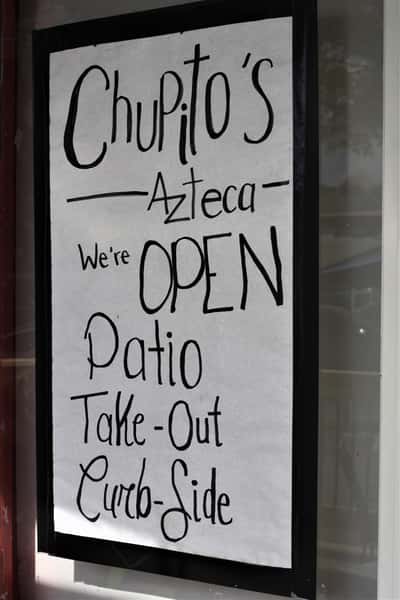 Chupito's
Azteca
We're OPEN
Patio
Take-Out
Curb-Side